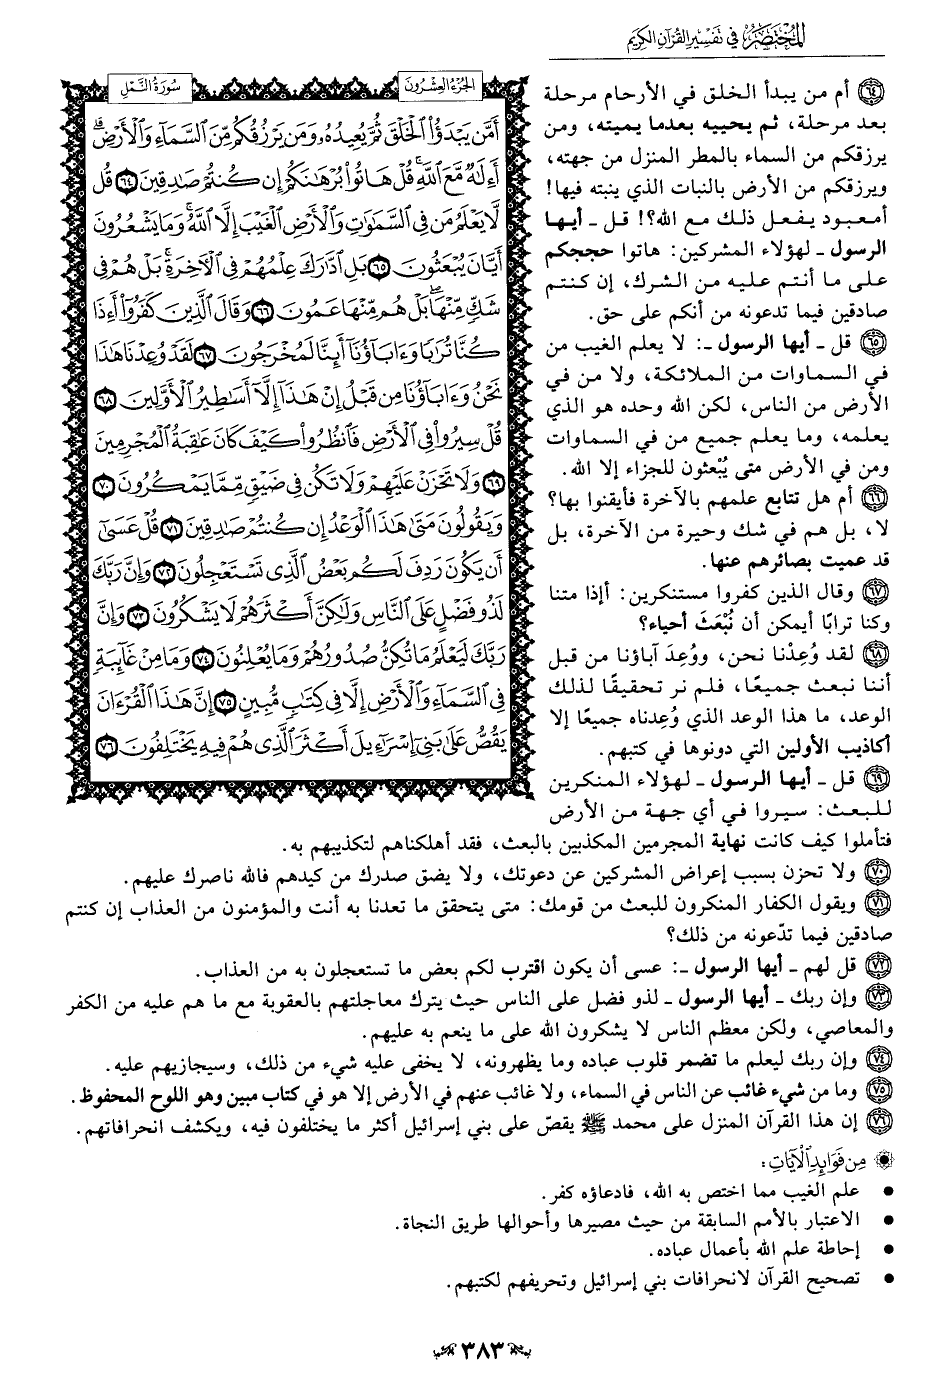 المختصر في تفسير القرآن الكريم
الجزء العشرون
سورة النمل
أَمَّن يَبْدَؤُا۟ ٱلْخَلْقَ ثُمَّ يُعِيدُهُۥ وَمَن يَرْزُقُكُم مِّنَ ٱلسَّمَآءِ وَٱلْأَرْضِ ۗ
أَءِلَٰهٌ مَّعَ ٱللَّهِ ۚ قُلْ هَاتُوا۟ بُرْهَٰنَكُمْ إِن كُنتُمْ صَٰدِقِينَ ٦٤ قُل
لَّا يَعْلَمُ مَن فِى ٱلسَّمَٰوَٰتِ وَٱلْأَرْضِ ٱلْغَيْبَ إِلَّا ٱللَّهُ ۚ وَمَا يَشْعُرُونَ
أَيَّانَ يُبْعَثُونَ ٦٥ بَلِ ٱدَّٰرَكَ عِلْمُهُمْ فِى ٱلْءَاخِرَةِ ۚ بَلْ هُمْ فِى
شَكٍّ مِّنْهَا ۖ بَلْ هُم مِّنْهَا عَمُونَ ٦٦ وَقَالَ ٱلَّذِينَ كَفَرُوٓا۟ أَءِذَا
كُنَّا تُرَٰبًا وَءَابَآؤُنَآ أَئِنَّا لَمُخْرَجُونَ ٦٧ لَقَدْ وُعِدْنَا هَٰذَا
نَحْنُ وَءَابَآؤُنَا مِن قَبْلُ إِنْ هَٰذَآ إِلَّآ أَسَٰطِيرُ ٱلْأَوَّلِينَ ٦٨
قُلْ سِيرُوا۟ فِى ٱلْأَرْضِ فَٱنظُرُوا۟ كَيْفَ كَانَ عَٰقِبَةُ ٱلْمُجْرِمِينَ
٦٩ وَلَا تَحْزَنْ عَلَيْهِمْ وَلَا تَكُن فِى ضَيْقٍ مِّمَّا يَمْكُرُونَ ٧٠
وَيَقُولُونَ مَتَىٰ هَٰذَا ٱلْوَعْدُ إِن كُنتُمْ صَٰدِقِينَ ٧١ قُلْ عَسَىٰٓ
أَن يَكُونَ رَدِفَ لَكُم بَعْضُ ٱلَّذِى تَسْتَعْجِلُونَ ٧٢ وَإِنَّ رَبَّكَ
لَذُو فَضْلٍ عَلَى ٱلنَّاسِ وَلَٰكِنَّ أَكْثَرَهُمْ لَا يَشْكُرُونَ ٧٣ وَإِنَّ
رَبَّكَ لَيَعْلَمُ مَا تُكِنُّ صُدُورُهُمْ وَمَا يُعْلِنُونَ ٧٤ وَمَا مِنْ غَآئِبَةٍ
فِى ٱلسَّمَآءِ وَٱلْأَرْضِ إِلَّا فِى كِتَٰبٍ مُّبِينٍ ٧٥ إِنَّ هَٰذَا ٱلْقُرْءَانَ
يَقُصُّ عَلَىٰ بَنِىٓ إِسْرَٰٓءِيلَ أَكْثَرَ ٱلَّذِى هُمْ فِيهِ يَخْتَلِفُونَ ٧٦
٦٤ أم من يبدأ الخلق في الأرحام مرحلة
بعد مرحلة، ثم يحييه بعدما يميته، ومن
يرزقكم من السماء بالمطر المنزل من جهته،
ويرزقكم من الأرض بالنبات الذي ينبته فيها!
أمعبود يفعل ذلك مع الله؟! قل ـ أيها
الرسول ـ لهؤلاء المشركين: هاتوا حججكم
على ما أنتم عليه من الشرك، إن كنتم
صادقين فيما تدعونه من أنكم على حق.
٦٥ قل ـ أيها الرسول ـ: لا يعلم الغيب من
في السماوات من الملائكة، ولا من في
الأرض من الناس، لكن الله وحده هو الذي
يعلمه، وما يعلم جميع من في السماوات
ومن في الأرض متى يُبْعثون للجزاء إلا الله.
٦٦ أم هل تتابع علمهم بالآخرة فأيقنوا بها؟
لا، بل هم في شك وحيرة من الآخرة، بل
قد عميت بصائرهم عنها.
٦٧ وقال الذين كفروا مستنكرين: أإذا متنا
وكنا ترابًا أيمكن أن نُبْعَثَ أحياء؟
٦٨ لقد وُعِدْنا نحن، ووُعِدَ آباؤنا من قبل
أننا نبعث جميعًا، فلم نر تحقيقًا لذلك
الوعد، ما هذا الوعد الذي وُعِدناه جميعًا إلا
أكاذيب الأولين التي دونوها في كتبهم.
٦٩ قل ـ أيها الرسول ـ لهؤلاء المنكرين
للبعث: سيروا في أي جهة من الأرض
فتأملوا كيف كانت نهاية المجرمين المكذبين بالبعث، فقد أهلكناهم لتكذيبهم به.
٧٠ ولا تحزن بسبب إعراض المشركين عن دعوتك، ولا يضق صدرك من كيدهم فالله ناصرك عليهم.
٧١ ويقول الكفار المنكرون للبعث من قومك: متى يتحقق ما تعدنا به أنت والمؤمنون من العذاب إن كنتم
صادقين فيما تدّعونه من ذلك؟
٧٢ قل لهم ـ أيها الرسول ـ: عسى أن يكون اقترب لكم بعض ما تستعجلون به من العذاب.
٧٣ وإن ربك ـ أيها الرسول ـ لذو فضل على الناس حيث يترك معاجلتهم بالعقوبة مع ما هم عليه من الكفر
والمعاصي، ولكن معظم الناس لا يشكرون الله على ما ينعم به عليهم.
٧٤ وإن ربك ليعلم ما تضمر قلوب عباده وما يظهرونه، لا يخفى عليه شيء من ذلك، وسيجازيهم عليه.
٧٥ وما من شيء غائب عن الناس في السماء، ولا غائب عنهم في الأرض إلا هو في كتاب مبين وهو اللوح المحفوظ.
٧٦ إن هذا القرآن المنزل على محمد ﷺ يقصّ على بني إسرائيل أكثر ما يختلفون فيه، ويكشف انحرافاتهم.
من فوائد الآيات:
• علم الغيب مما اختص به الله، فادعاؤه كفر.
• الاعتبار بالأمم السابقة من حيث مصيرها وأحوالها طريق النجاة.
• إحاطة علم الله بأعمال عباده.
• تصحيح القرآن لانحرافات بني إسرائيل وتحريفهم لكتبهم.
٣٨٣